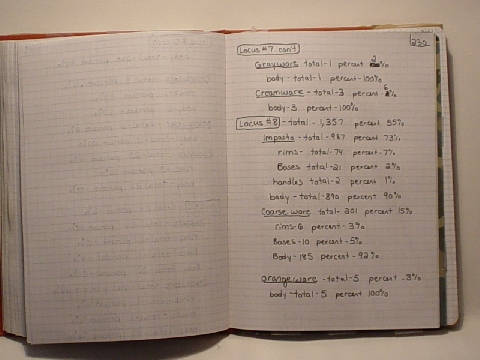 230
Locus #7 cont
Grayware total-1 percent 2%
body-total-1 percent-100%
Creamware-total-3 percent 6%
body-3 percent-100%
Locus #8-total-1,357 percent 55%
impasto-total-987 percent 73%
rims-total-74 percent-7%
Bases total-21 percent 2%
handles total-2 percent 1%
body-total-890 percent 90%
Coarse ware total-201 percent 15%
rims-6 percent-3%
Bases-10 percent-5%
Body-185 percent-92%
orangeware-total-5 percent-.3%
body-total-5 percent 100%